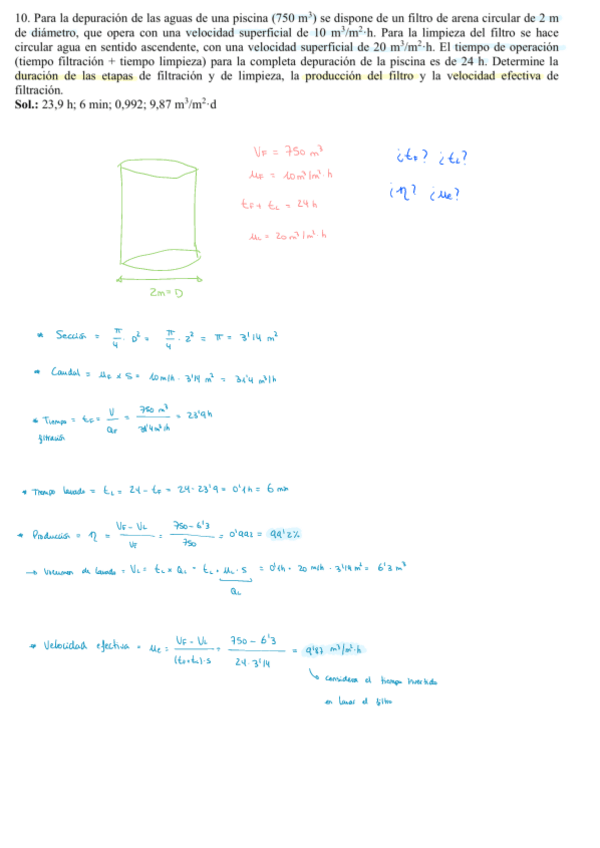 10. Para la depuración de las aguas de una piscina (750 m³) se dispone de un filtro de arena circular de 2 m
de diámetro, que opera con una velocidad superficial de 10 m³/m²·h. Para la limpieza del filtro se hace
circular agua en sentido ascendente, con una velocidad superficial de 20 m³/m²·h. El tiempo de operación
(tiempo filtración + tiempo limpieza) para la completa depuración de la piscina es de 24 h. Determine la
duración de las etapas de filtración y de limpieza, la producción del filtro y la velocidad efectiva de
filtración.
Sol.: 23,9 h; 6 min; 0,992; 9,87 m³/m²·d
VF = 750 m³
μF = 10 m³/m²·h
tF + tL = 24 h
μL = 20 m³/m²·h
¿tF? ¿tL?
¿η? ¿μe?
2m = D
* Sección = π/4 · D² = π/4 · 2² = π = 3'14 m²
* Caudal = μF x S = 10 m/h · 3'14 m² = 31'4 m³/h
* Tiempo = tF = V/QF = 750 m³ / 31'4 m³/h = 23'9 h
filtración
* Tiempo lavado = tL = 24 - tF = 24 - 23'9 = 0'1 h = 6 min
* Producción = η = VF - VL / VF = 750 - 6'3 / 750 = 0'992 = 99'2%
→ Volumen de lavado = VL = tL x QL = tL · μL · S = 0'1h · 20 m/h · 3'14 m² = 6'3 m³
QL
* Velocidad efectiva = μe = VF - VL / (tF+tL)·S = 750 - 6'3 / 24 · 3'14 = 9'87 m³/m²·h
↳ considera el tiempo invertido
en lavar el filtro